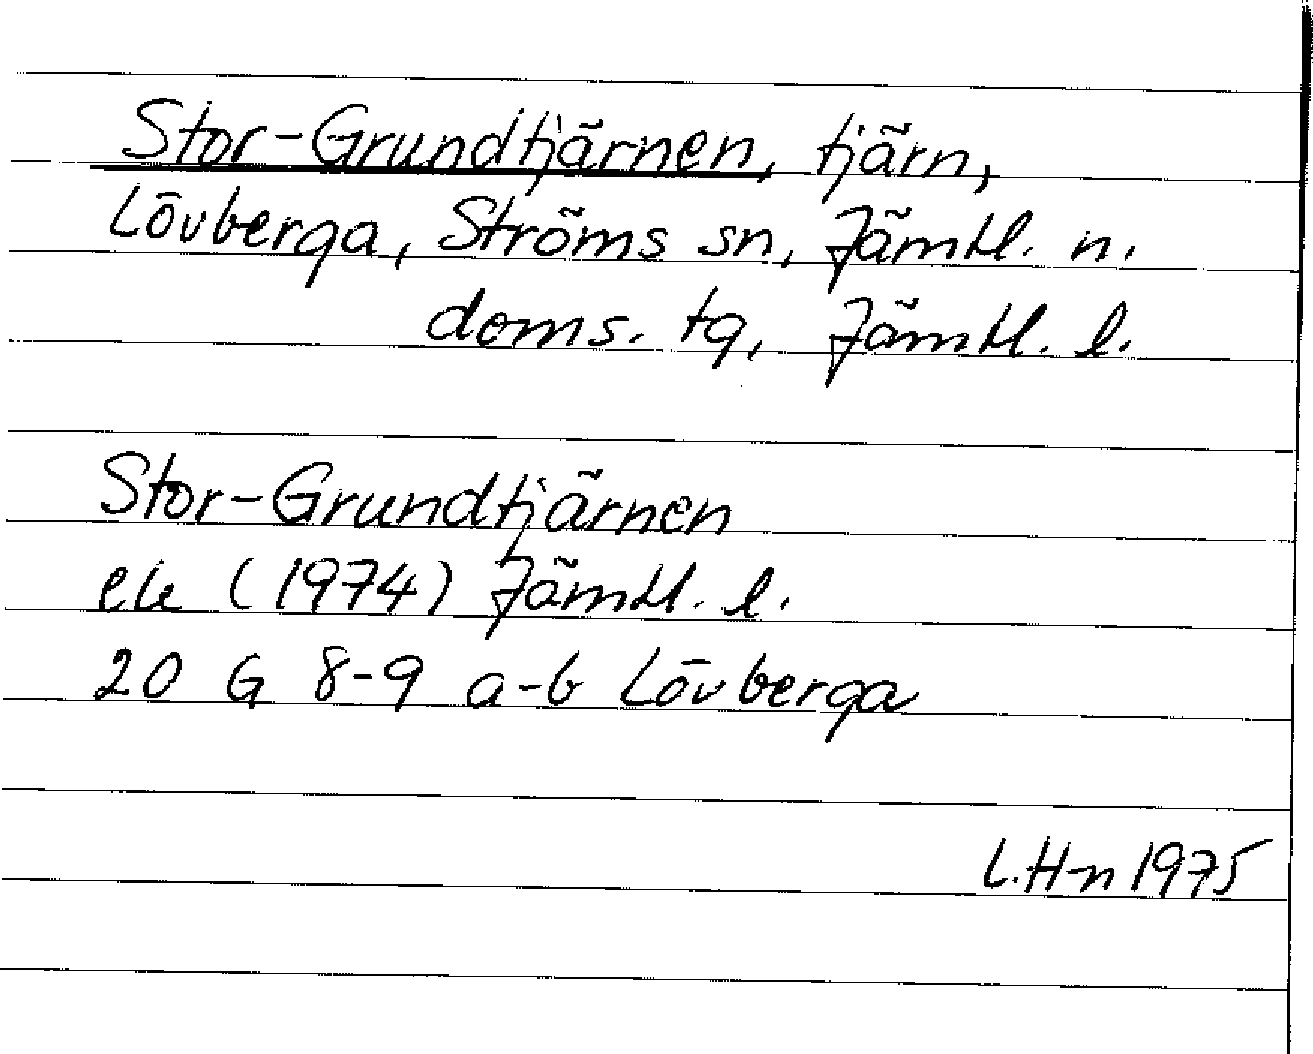 Stor-Grundtjärnen, tjärn,
Lövberga, Ströms sn, Jämtl. n.
doms. tg, Jämtl. l.
Stor-Grundtjärnen
ek (1974) Jämtl. l.
20 G 8-9 a-b Lövberga
L.H-n 1975